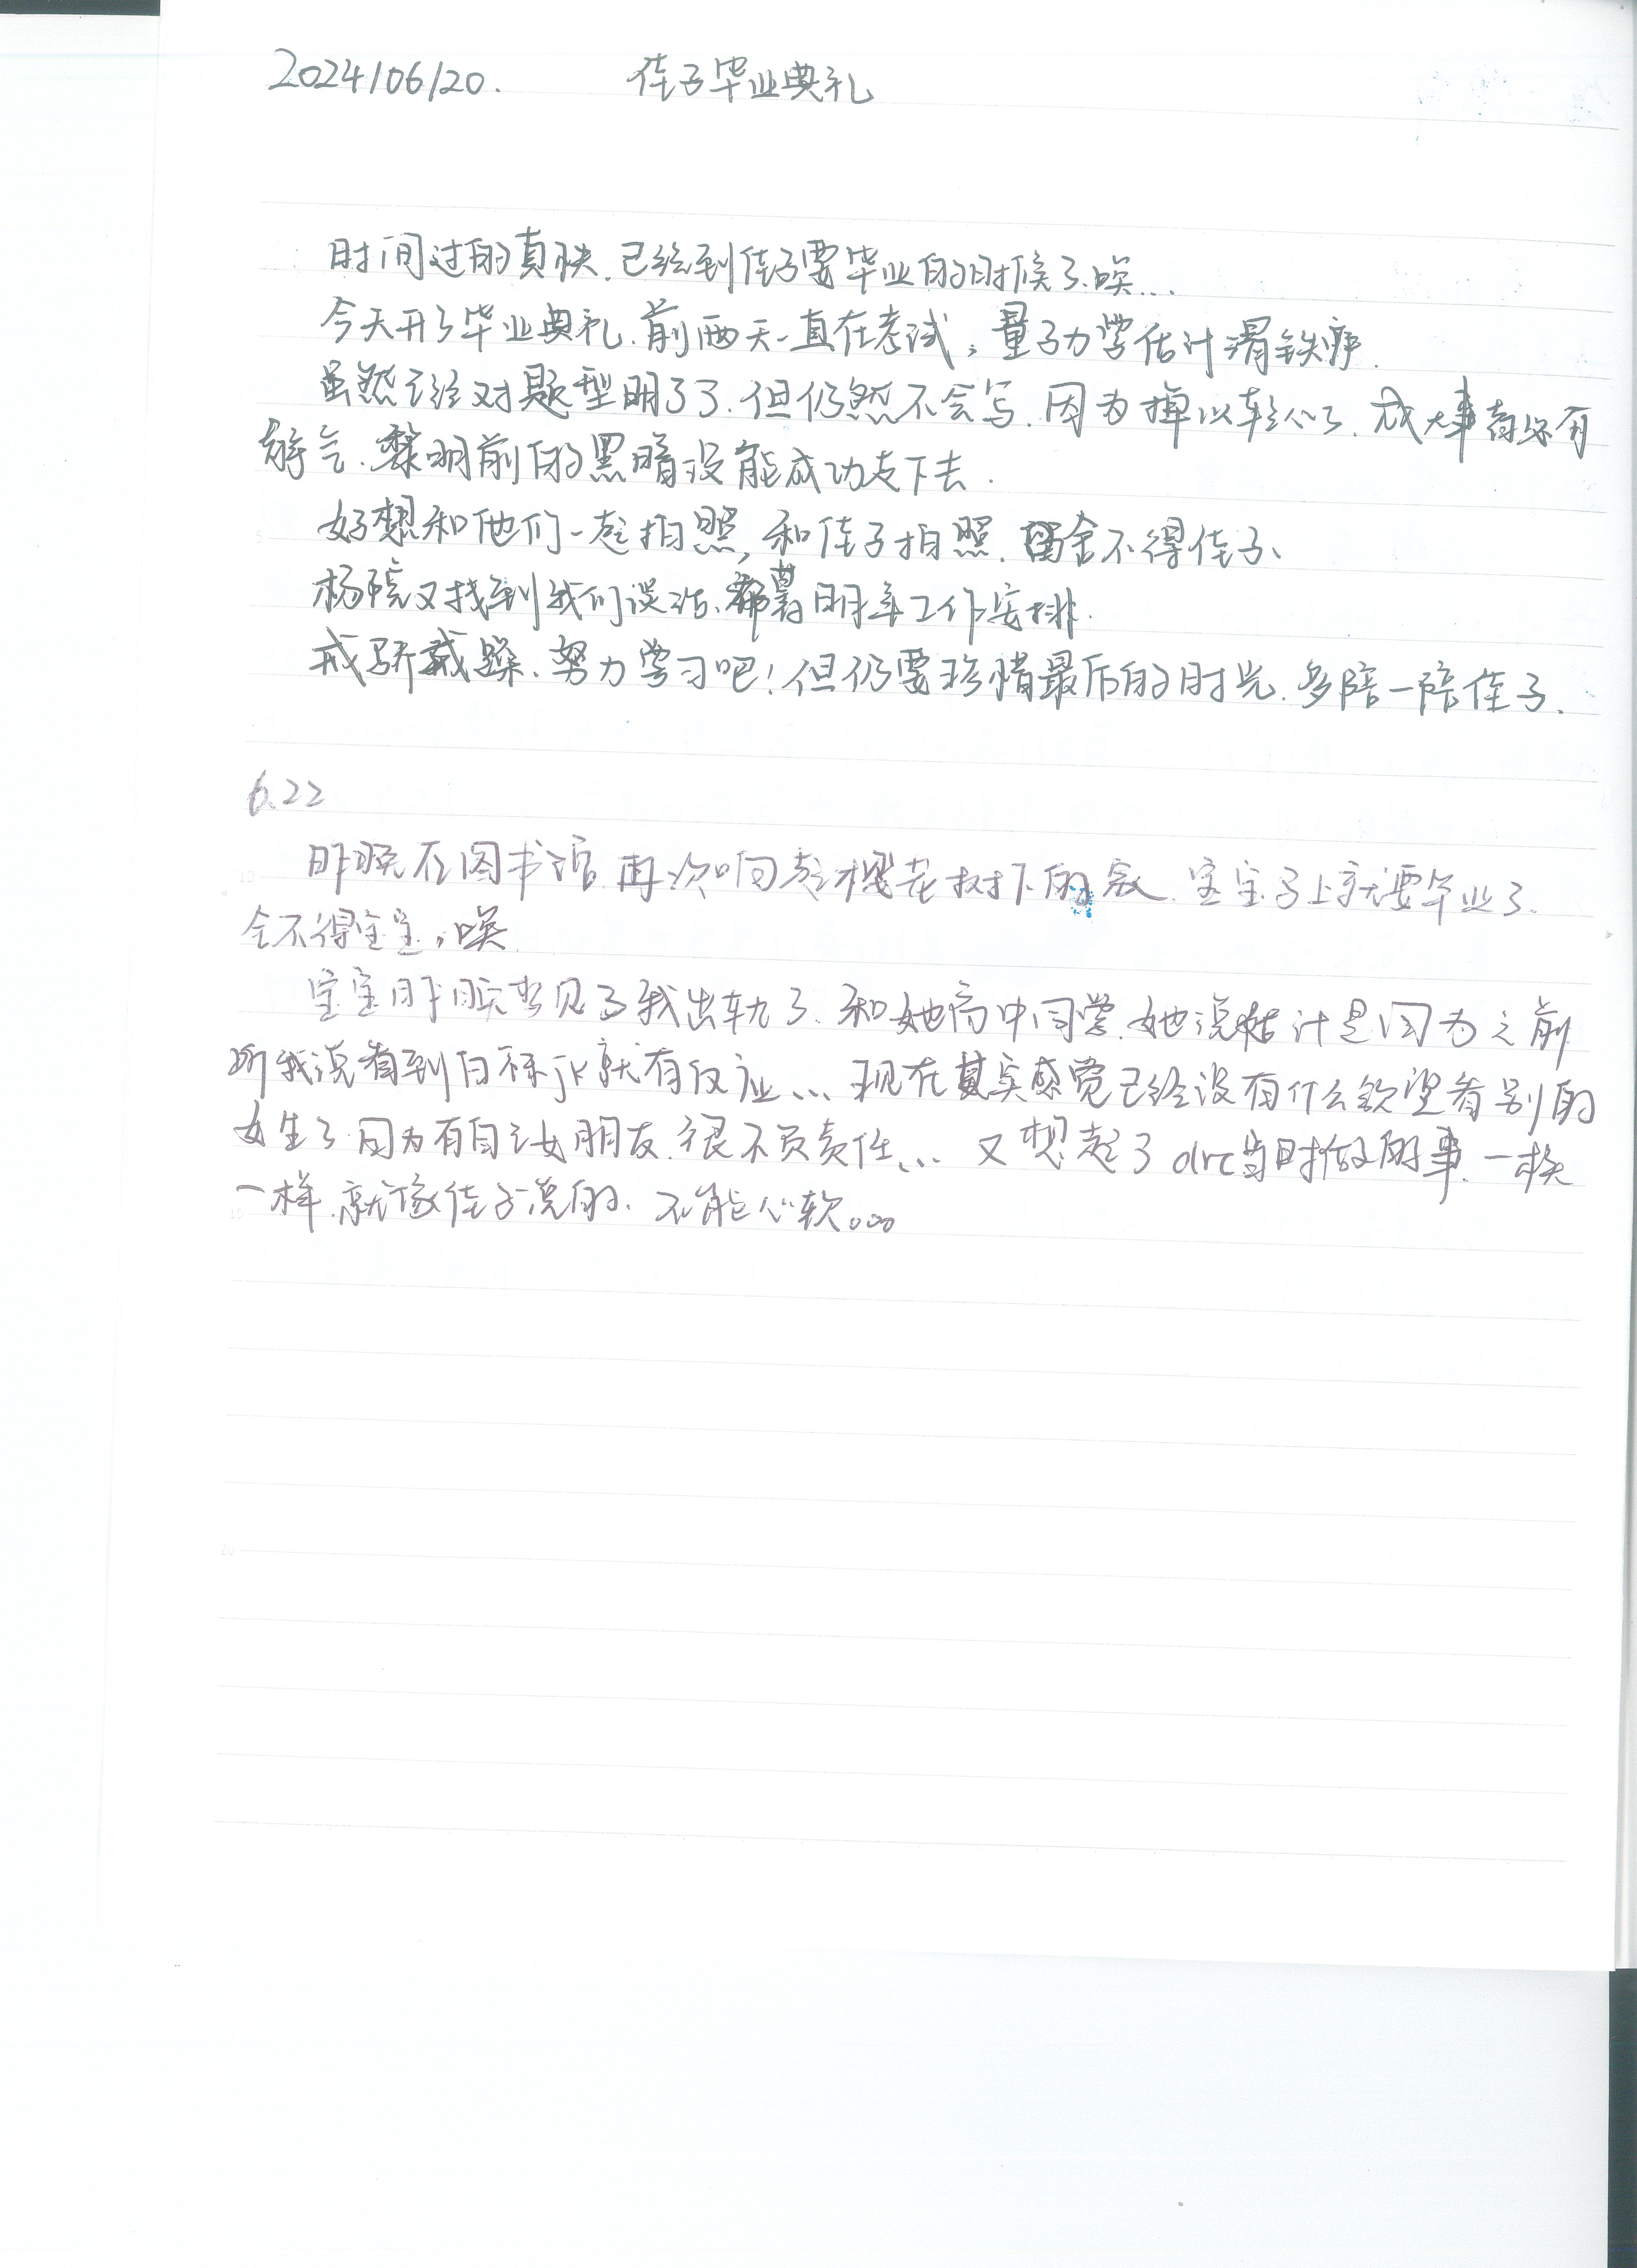 2024/06/20. 佳子毕业典礼
时间过的真快.已经到佳子要毕业的时候了.唉...
今天开了毕业典礼.前两天一直在考试，量子力学估计得铁。
虽然已经对题型明了了.但仍然不会写.因为掉以轻心了.成大事者必有
静气.黎明前的黑暗没能成功走下去.
好想和他们一起拍照，和佳子拍照.舍不得佳子、
杨院又找到我们谈话、明年工作安排.
戒骄戒躁、努力学习吧！但仍要珍惜最后的时光.多陪一陪佳子.
6.22
昨晚在图书馆.再次响起樱花树下的家.宝宝马上就要毕业了.
舍不得宝宝，唉.
宝宝昨晚梦见了我出轨了.和她高中同学.她说估计是因为之前
听我说看到白裤jk就有反应... 现在其实感觉已经没有什么欲望看别的
女生了.因为有自己女朋友.很不负责任... 又想起了drc当时做的事.一模
一样.就像佳子说的.不能心软。。。